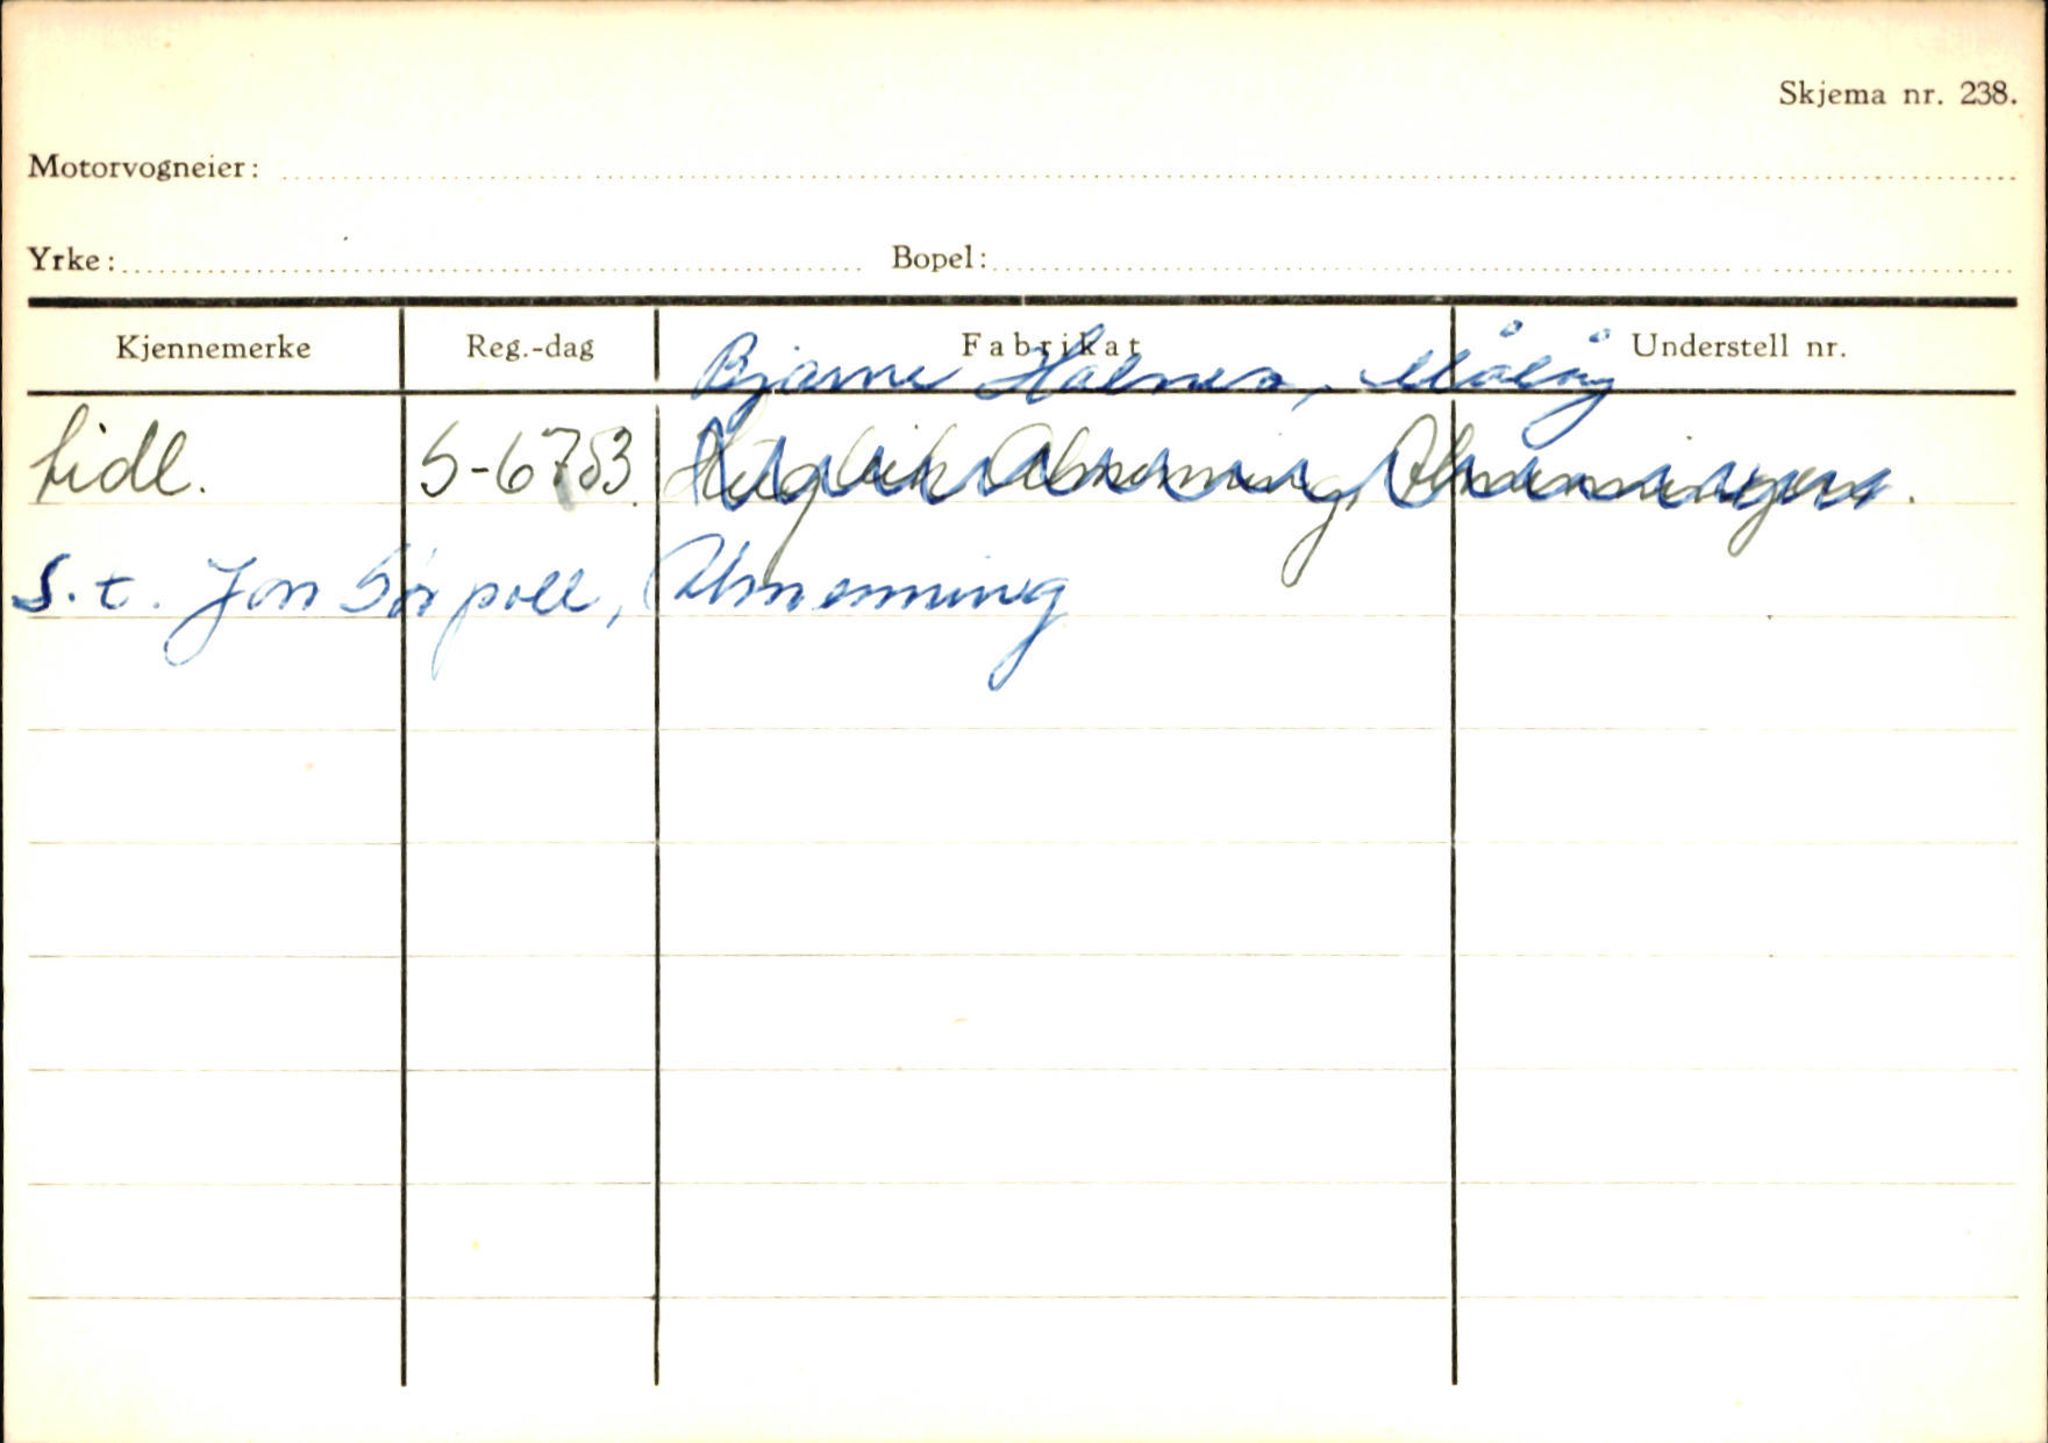 Skjema nr. 238.
Motorvogneier:
Yrke: Bopel:
Kjennemerke Reg.-dag Fabrikat Understell nr.
Bjarne Holmes, Måløy
tidl. S-6783 Almenning, Almenningen.
S.t. Jon Sörpoll, Almenning